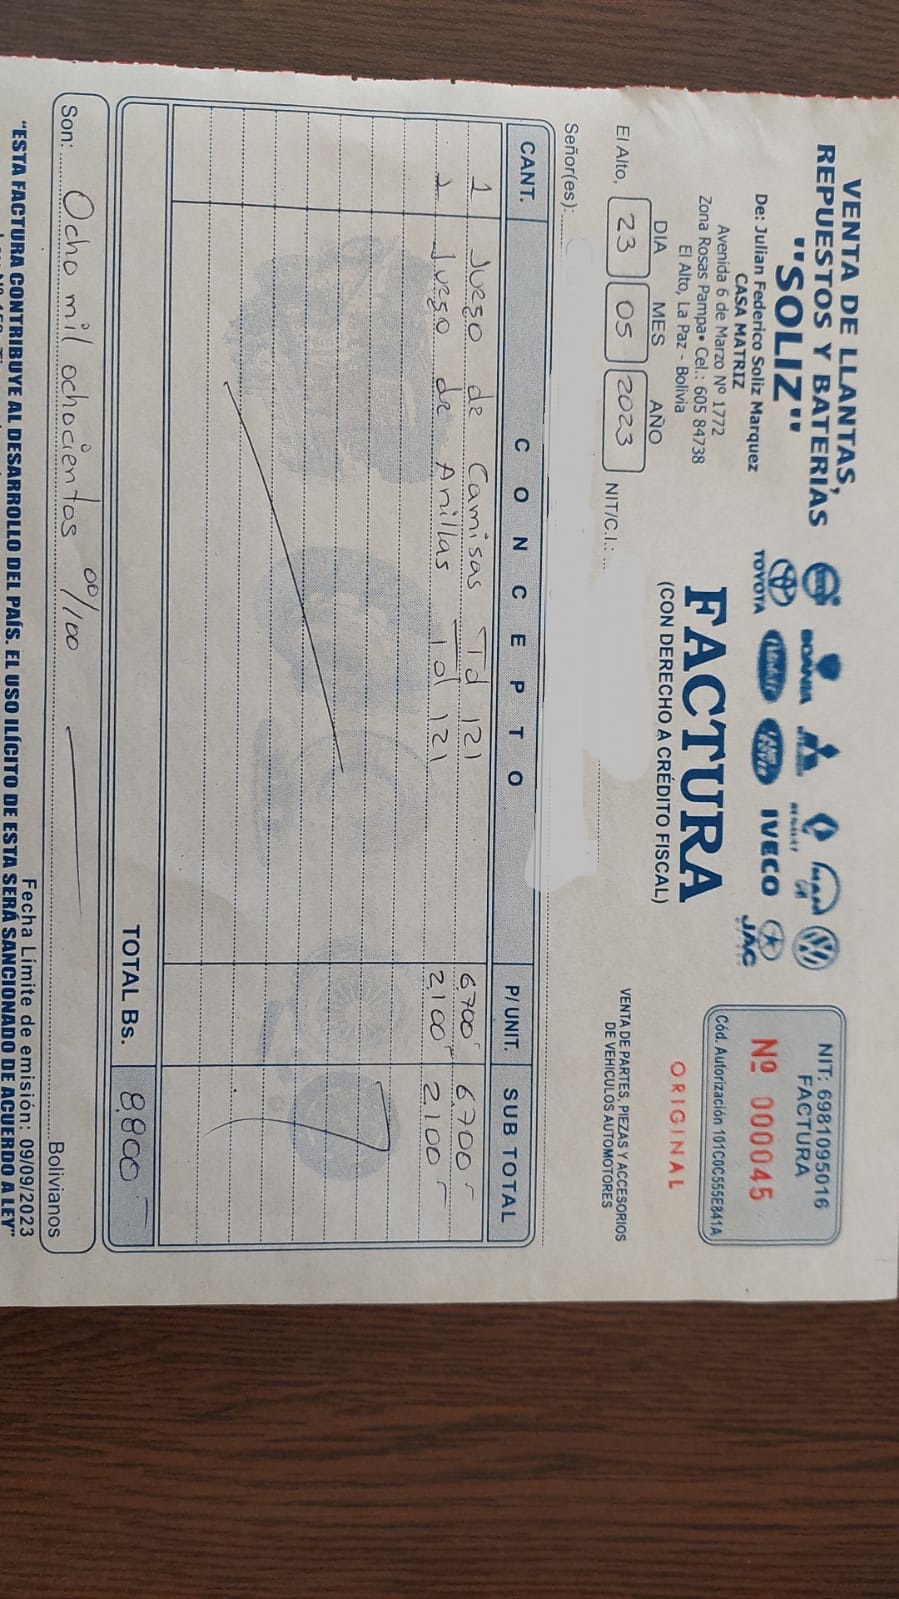 VENTA DE LLANTAS,
REPUESTOS Y BATERIAS
"SOLIZ"
De: Julian Federico Soliz Marquez
CASA MATRIZ
Avenida 6 de Marzo Nº 1772
Zona Rosas Pampa • Cel.: 605 84738
El Alto, La Paz - Bolivia
SCANIA
TOYOTA
IVECO
JAC
NIT: 6981095016
FACTURA
Nº 000045
Cód. Autorización 101C0C555E841A
ORIGINAL
FACTURA
(CON DERECHO A CRÉDITO FISCAL)
VENTA DE PARTES, PIEZAS Y ACCESORIOS
DE VEHICULOS AUTOMOTORES
DIA MES AÑO
El Alto, 23 05 2023 NIT/C.I.:
Señor(es):
CANT. CONCEPTO P/UNIT. SUB TOTAL
1 Juego de Camisas Td 121 6700 6700
1 Juego de Anillas Td 121 2100 2100
TOTAL Bs. 8800
Son: Ocho mil ochocientos 00/100 Bolivianos
Fecha Límite de emisión: 09/09/2023
"ESTA FACTURA CONTRIBUYE AL DESARROLLO DEL PAÍS. EL USO ILÍCITO DE ESTA SERÁ SANCIONADO DE ACUERDO A LEY"